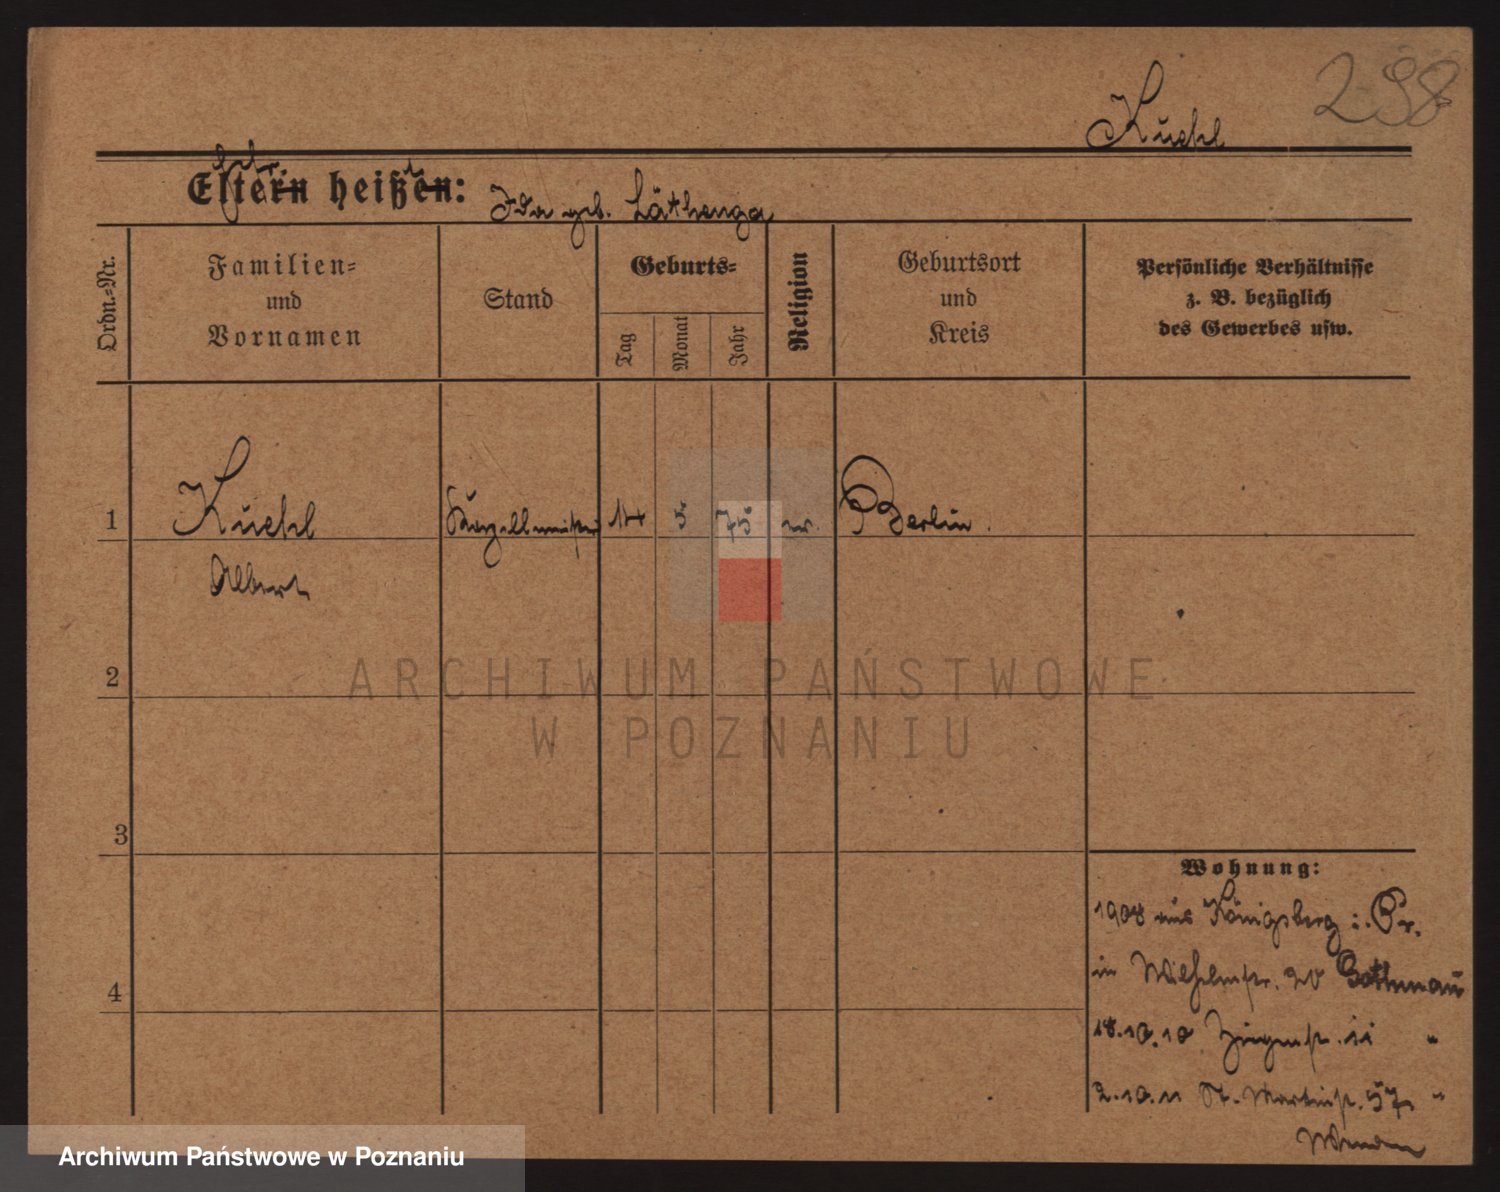 298
Kuehl
Eltern heißen: Ida geb.
Ordn.-Nr.
Familien-
und
Vornamen
Stand
Geburts-
Tag
Monat
Jahr
Religion
Geburtsort
und
Kreis
Persönliche Verhältnisse
z. B. bezüglich
des Gewerbes usw.
1
Kuehl
14
5
75
Berlin.
Albert
2
ARCHIWUM PAŃSTWOWE
W POZNANIU
3
Wohnung:
1908 aus Königsberg i. Pr.
in Wilhelmstr. 20
4
18.10.10
2.10.11 St. Martinstr. 57 "
Archiwum Państwowe w Poznaniu